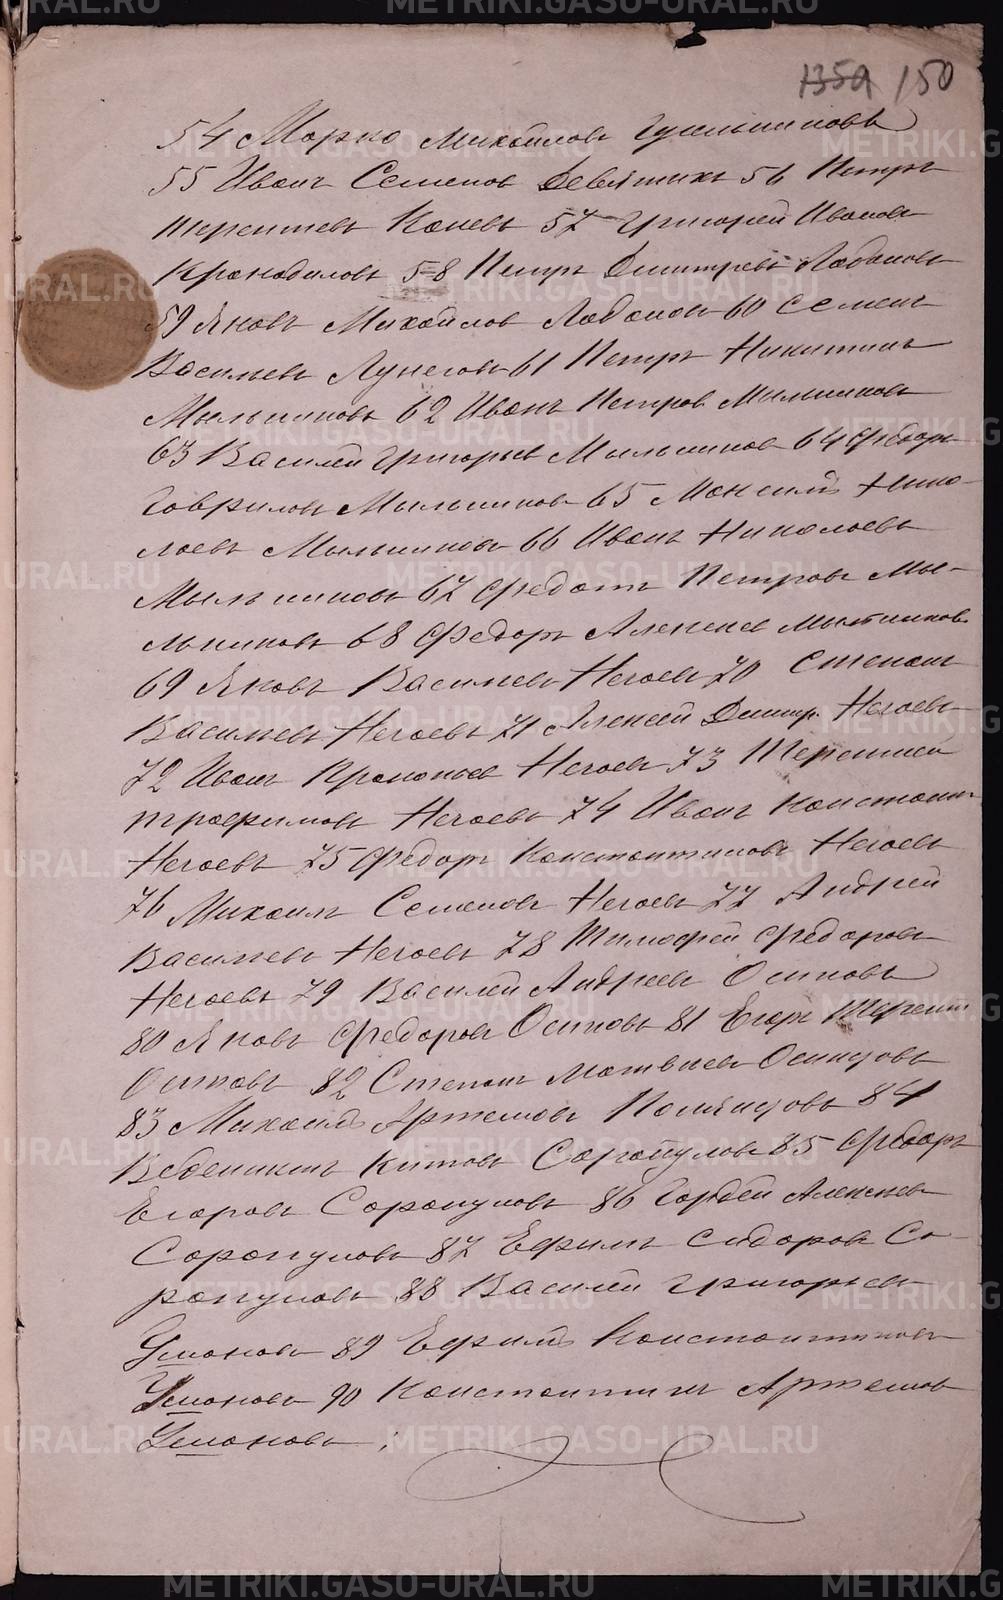 135а 150
54 Марко Михайловъ Гусельниковъ
55 Иванъ Семеновъ Девятихъ 56 Петръ
Терентьевъ Коневъ 57 Григорей Ивановъ
Крокодиловъ 58 Петръ Дмитревъ Лобановъ
59 Яковъ Михайлов Лобановъ 60 Семенъ
Васильевъ Лунеговъ 61 Петръ Никитинъ
Мыльниковъ 62 Иванъ Петров Мыльниковъ
63 Василей Григорьев Мыльников 64 Федоръ
Гавриловъ Мыльниковъ 65 Максимъ Нико-
лаевъ Мыльниковъ 66 Иванъ Николаевъ
Мыльниковъ 67 Федотъ Петровъ Мы-
льниковъ 68 Федоръ Алексеев Мыльниковъ
69 Яковъ Васильевъ Негаевъ 70 Степанъ
Васильевъ Негаевъ 71 Алексей Дмитр. Негаевъ
72 Иванъ Прокопьев Негаевъ 73 Терентей
Трофимовъ Негаевъ 74 Иванъ Констант
Негаевъ 75 Федоръ Константиновъ Негаевъ
76 Михаилъ Семеновъ Негаевъ 77 Андрей
Васильевъ Негаевъ 78 Тимофей Федоровъ
Негаевъ 79 Василей Андреевъ Осиповъ
80 Яковъ Федоровъ Осиповъ 81 Егоръ Терент
Осиповъ 82 Степанъ Матвеевъ Осиповъ
83 Михаилъ Артемовъ 84
Веденихтъ Титовъ Сорапуловъ 85 Федоръ
Егоровъ Сорапуловъ 86 Гордей Алексеев
Сорапуловъ 87 Ефимъ Сидоровъ Со-
рапуловъ 88 Василей Григорьевъ
Усмановъ 89 Ефимъ Константиновъ
Усмановъ 90 Константинъ Артемов
Усмановъ
METRIKI.GASO-URAL.RU